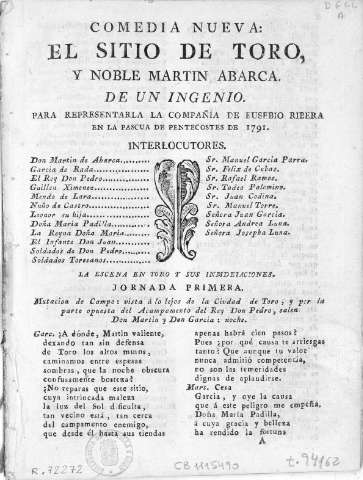 D GCL
A
COMEDIA NUEVA:
EL SITIO DE TORO,
Y NOBLE MARTIN ABARCA.
DE UN INGENIO.
PARA REPRESENTARLA LA COMPAÑIA DE EUSEBIO RIBERA
EN LA PASCUA DE PENTECOSTES DE 1791.
INTERLOCUTORES.
Don Martin de Abarca
Garcia de Rada
El Rey Don Pedro
Guillen Ximenez
Mendo de Lara
Nuño de Castro
Leonor su hija
Doña Maria Padilla
La Reyna Doña Maria
El Infante Don Juan
Soldados de Don Pedro
Soldados Toresanos
Sr. Manuel Garcia Parra.
Sr. Felix de Cubas.
Sr. Rafael Ramos.
Sr. Tadeo Palomino.
Sr. Juan Codina.
Sr. Manuel Torre.
Señora Juan Garcia.
Señora Andrea Luna.
Señora Josepha Luna.
LA ESCENA EN TORO Y SUS INMEDIACIONES.
JORNADA PRIMERA.
Mutacion de Campo: vista á lo lejos de la Ciudad de Toro; y por la
parte opuesta del Acampamento del Rey Don Pedro, salen
Don Martin y Don Garcia: noche.
Garc. ¿A dónde, Martin valiente,
dexando tan sin defensa
de Toro los altos muros,
caminamos entre espesas
sombras, que la noche obscura
confusamente bosteza?
¿No reparas que este sitio,
cuya intrincada maleza
la luz del Sol dificulta,
tan vecino está, tan cerca
del campamento enemigo,
que desde él hasta sus tiendas
apenas habrá cien pasos?
Pues ¿por qué causa te arriesgas
tanto? Que aunque tu valor
nunca admitió competencia,
no son las temeridades
dignas de aplaudirse.
Mart. Cesa
Garcia, y oye la causa
que á este peligro me empeña.
Doña Maria Padilla,
á cuya gracia y belleza
ha rendido la fortuna
A
R. 72272
CB 1115490
t. 94162